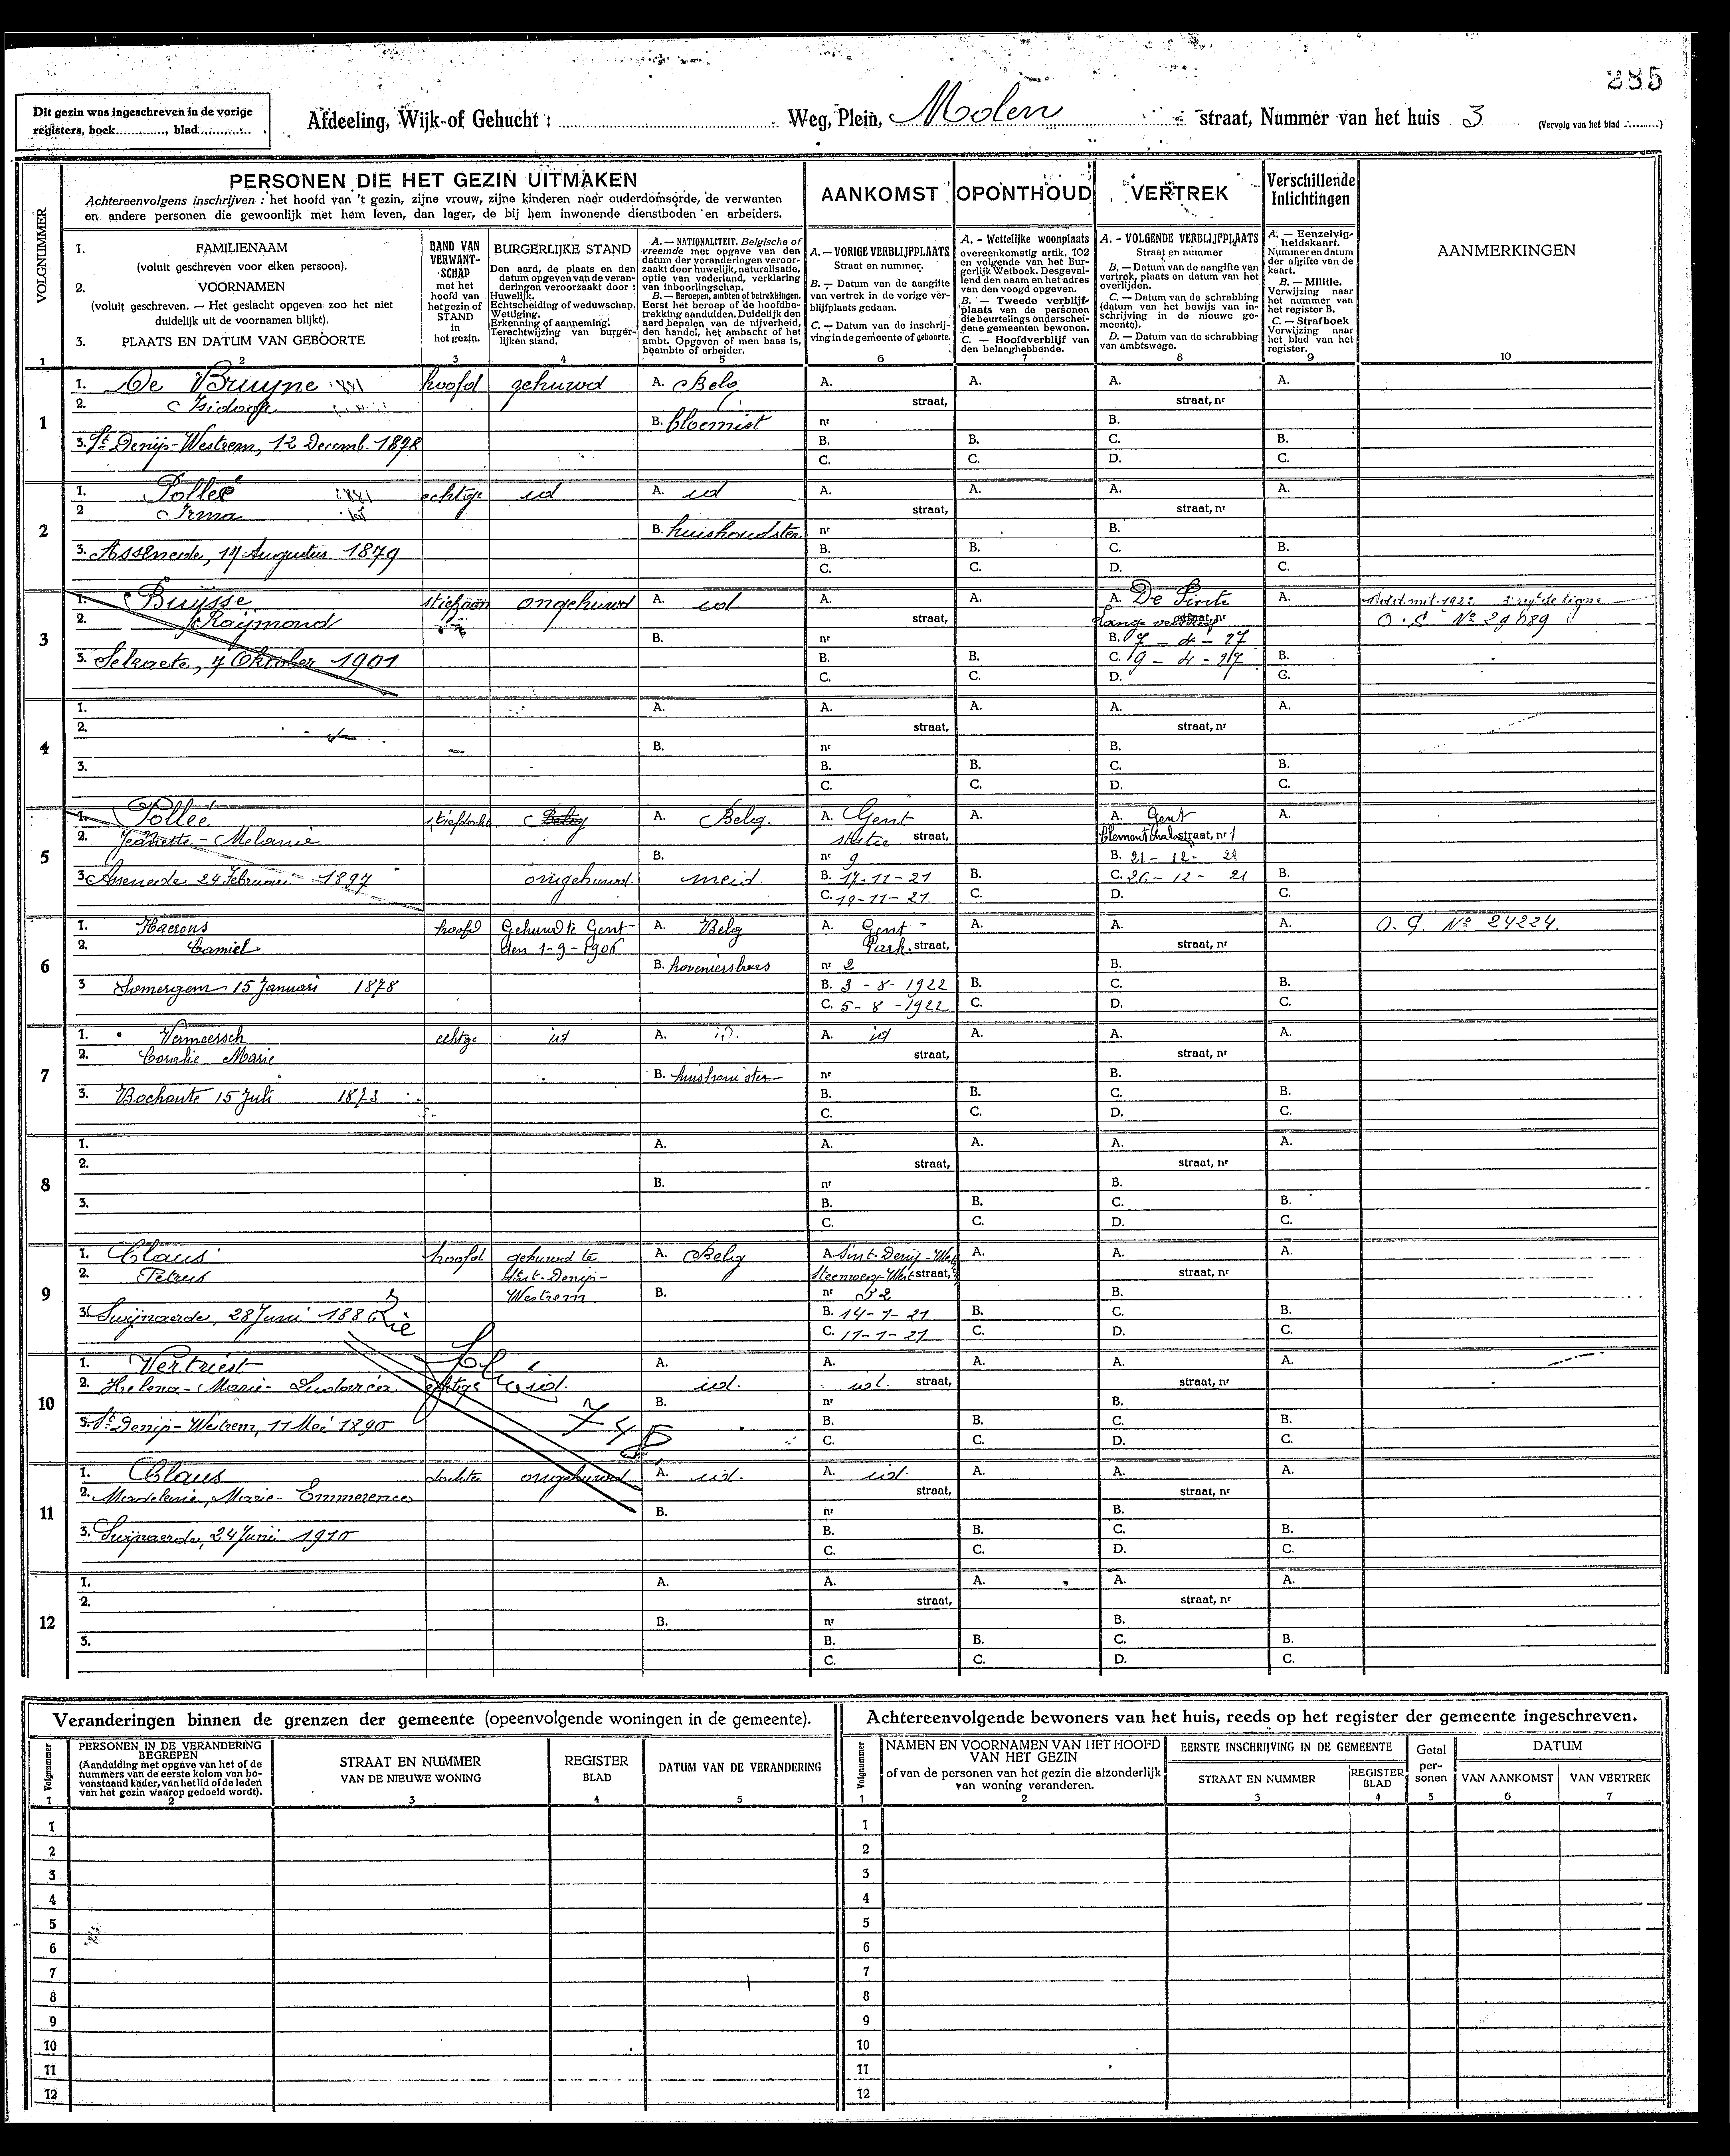 285
Dit gezin was ingeschreven in de vorige
registers, boek............, blad............
Afdeeling, Wijk of Gehucht : Weg, Plein, Molen straat, Nummer van het huis 3 (Vervolg van het blad .........)
VOLGNUMMER
PERSONEN DIE HET GEZIN UITMAKEN
Achtereenvolgens inschrijven : het hoofd van 't gezin, zijne vrouw, zijne kinderen naar ouderdomsorde, de verwanten
en andere personen die gewoonlijk met hem leven, dan lager, de bij hem inwonende dienstboden en arbeiders.
AANKOMST
OPONTHOUD
VERTREK
Verschillende
Inlichtingen
1. FAMILIENAAM
(voluit geschreven voor elken persoon).
2. VOORNAMEN
(voluit geschreven. — Het geslacht opgeven zoo het niet
duidelijk uit de voornamen blijkt).
3. PLAATS EN DATUM VAN GEBOORTE
BAND VAN
VERWANT-
SCHAP
met het
hoofd van
het gezin of
STAND
in
het gezin.
BURGERLIJKE STAND
Den aard, de plaats en den
datum opgeven van de veran-
deringen veroorzaakt door :
Huwelijk.
Echtscheiding of weduwschap.
Wettiging.
Erkenning of aanneming.
Terechtwijzing van burger-
lijken stand.
A. — NATIONALITEIT. Belgische of
vreemde met opgave van den
datum der veranderingen veroor-
zaakt door huwelijk, naturalisatie,
optie van vaderland, verklaring
van inboorlingschap.
B. — Beroepen, ambten of betrekkingen.
Eerst het beroep of de hoofdbe-
trekking aanduiden. Duidelijk den
aard bepalen van de nijverheid,
den handel, het ambacht of het
ambt. Opgeven of men baas is,
beambte of arbeider.
A. — VORIGE VERBLIJFPLAATS
Straat en nummer.
B. — Datum van de aangifte
van vertrek in de vorige ver-
blijfplaats gedaan.
C. — Datum van de inschrij-
ving in de gemeente of geboorte.
A. - Wettelijke woonplaats
overeenkomstig artik. 102
en volgende van het Bur-
gerlijk Wetboek. Desgeval-
lend den naam en het adres
van den voogd opgeven.
B. — Tweede verblijf-
plaats van de personen
die beurtelings onderschei-
dene gemeenten bewonen.
C. — Hoofdverblijf van
den belanghebbende.
A. - VOLGENDE VERBLIJFPLAATS
Straat en nummer
B. — Datum van de aangifte van
vertrek, plaats en datum van het
overlijden.
C. — Datum van de schrabbing
(datum van het bewijs van in-
schrijving in de nieuwe ge-
meente).
D. — Datum van de schrabbing
van ambtswege.
A. — Eenzelvig-
heidskaart.
Nummer en datum
der afgifte van de
kaart.
B. — Militie.
Verwijzing naar
het nummer van
het register B.
C. — Strafboek
Verwijzing naar
het blad van het
register.
AANMERKINGEN
1 2 3 4 5 6 7 8 9 10
1
1. De Bruyne hoofd gehuwd A. Belg A. A. A. A.
2. Isidoor straat, straat, nr
B. bloemist nr B.
3. St Denijs-Westrem, 12 Decemb. 1878 B. B. C. B.
C. C. D. C.
2
1. Polleé echtge id A. id A. A. A. A.
2 Irma straat, straat, nr
B. huishoudster nr B.
3. Assenede, 17 Augustus 1879 B. B. C. B.
C. C. D. C.
3
1. Buijsse stiefzoon ongehuwd A. id A. A. A. De Pinte A.
2. Raijmond straat, straat, nr O. S. No
B. nr B. 7 - 4 - 27
3. Selzaete, 7 Oktober 1901 B. B. C. 19 - 4 - 27 B.
C. C. D. C.
4
1. A. A. A. A. A.
2. straat, straat, nr
B. nr B.
3. B. B. C. B.
C. C. D. C.
5
1. Polleé A. Belg. A. Gent A. A. Gent
2. Jeanette - Melanie statie straat, straat, nr
B. nr 9 B. 21 - 12 - 21
3. Assenede 24 Februari 1897 ongehuwd. meid. B. 17-11-21 B. C. 26 - 12 - 21 B.
C. 19-11-21 C. D. C.
6
1. Haerens hoofd Gehuwd te Gent A. Belg A. Gent A. A. A. O. G. No 24224
2. Camiel den 1-9-1906 Park straat, straat, nr
B. hoveniersbaas nr 2 B.
3 Somergem 15 Januari 1878 B. 3 - 8 - 1922 B. C. B.
C. 5 - 8 - 1922 C. D. C.
7
1. Vermeersch echtge id A. id. A. id A. A. A.
2. Coralie Marie straat, straat, nr
B. nr B.
3. Bochoute 15 Juli 1873 B. B. C. B.
C. C. D. C.
8
1. A. A. A. A. A.
2. straat, straat, nr
B. nr B.
3. B. B. C. B.
C. C. D. C.
9
1. Claus hoofd gehuwd te A. Belg A. Sint-Denijs- A. A. A.
2. Petrus Sint-Denijs- Steenweg straat, straat, nr
Westrem B. nr 32 B.
3. Swijnaerde, 28 Juni B. 14-1-21 B. C. B.
C. 17-1-21 C. D. C.
Zie
10
1. Vertriest A. A. A. A. A.
2. Helena - Marie - echtge id. id. id. straat, straat, nr
B. nr B.
3. St Denijs-Westrem, 11 Mei 1890 B. B. C. B.
C. C. D. C.
11
1. Claus dochter ongehuwd A. id. A. id. A. A. A.
2. Madeleine, Marie - Emmerence straat, straat, nr
B. nr B.
3. Swijnaerde, 24 Juni 1910 B. B. C. B.
C. C. D. C.
12
1. A. A. A. A. A.
2. straat, straat, nr
B. nr B.
3. B. B. C. B.
C. C. D. C.
Veranderingen binnen de grenzen der gemeente (opeenvolgende woningen in de gemeente).
Volgnummer
PERSONEN IN DE VERANDERING
BEGREPEN
(Aanduiding met opgave van het of de
nummers van de eerste kolom van bo-
venstaand kader, van het lid of de leden
van het gezin waarop gedoeld wordt).
STRAAT EN NUMMER
VAN DE NIEUWE WONING
REGISTER
BLAD
DATUM VAN DE VERANDERING
1 2 3 4 5
1
2
3
4
5
6
7
8
9
10
11
12
Achtereenvolgende bewoners van het huis, reeds op het register der gemeente ingeschreven.
Volgnummer
NAMEN EN VOORNAMEN VAN HET HOOFD
VAN HET GEZIN
of van de personen van het gezin die afzonderlijk
van woning veranderen.
EERSTE INSCHRIJVING IN DE GEMEENTE
STRAAT EN NUMMER
REGISTER
BLAD
Getal
per-
sonen
DATUM
VAN AANKOMST
VAN VERTREK
1 2 3 4 5 6 7
1
2
3
4
5
6
7
8
9
10
11
12